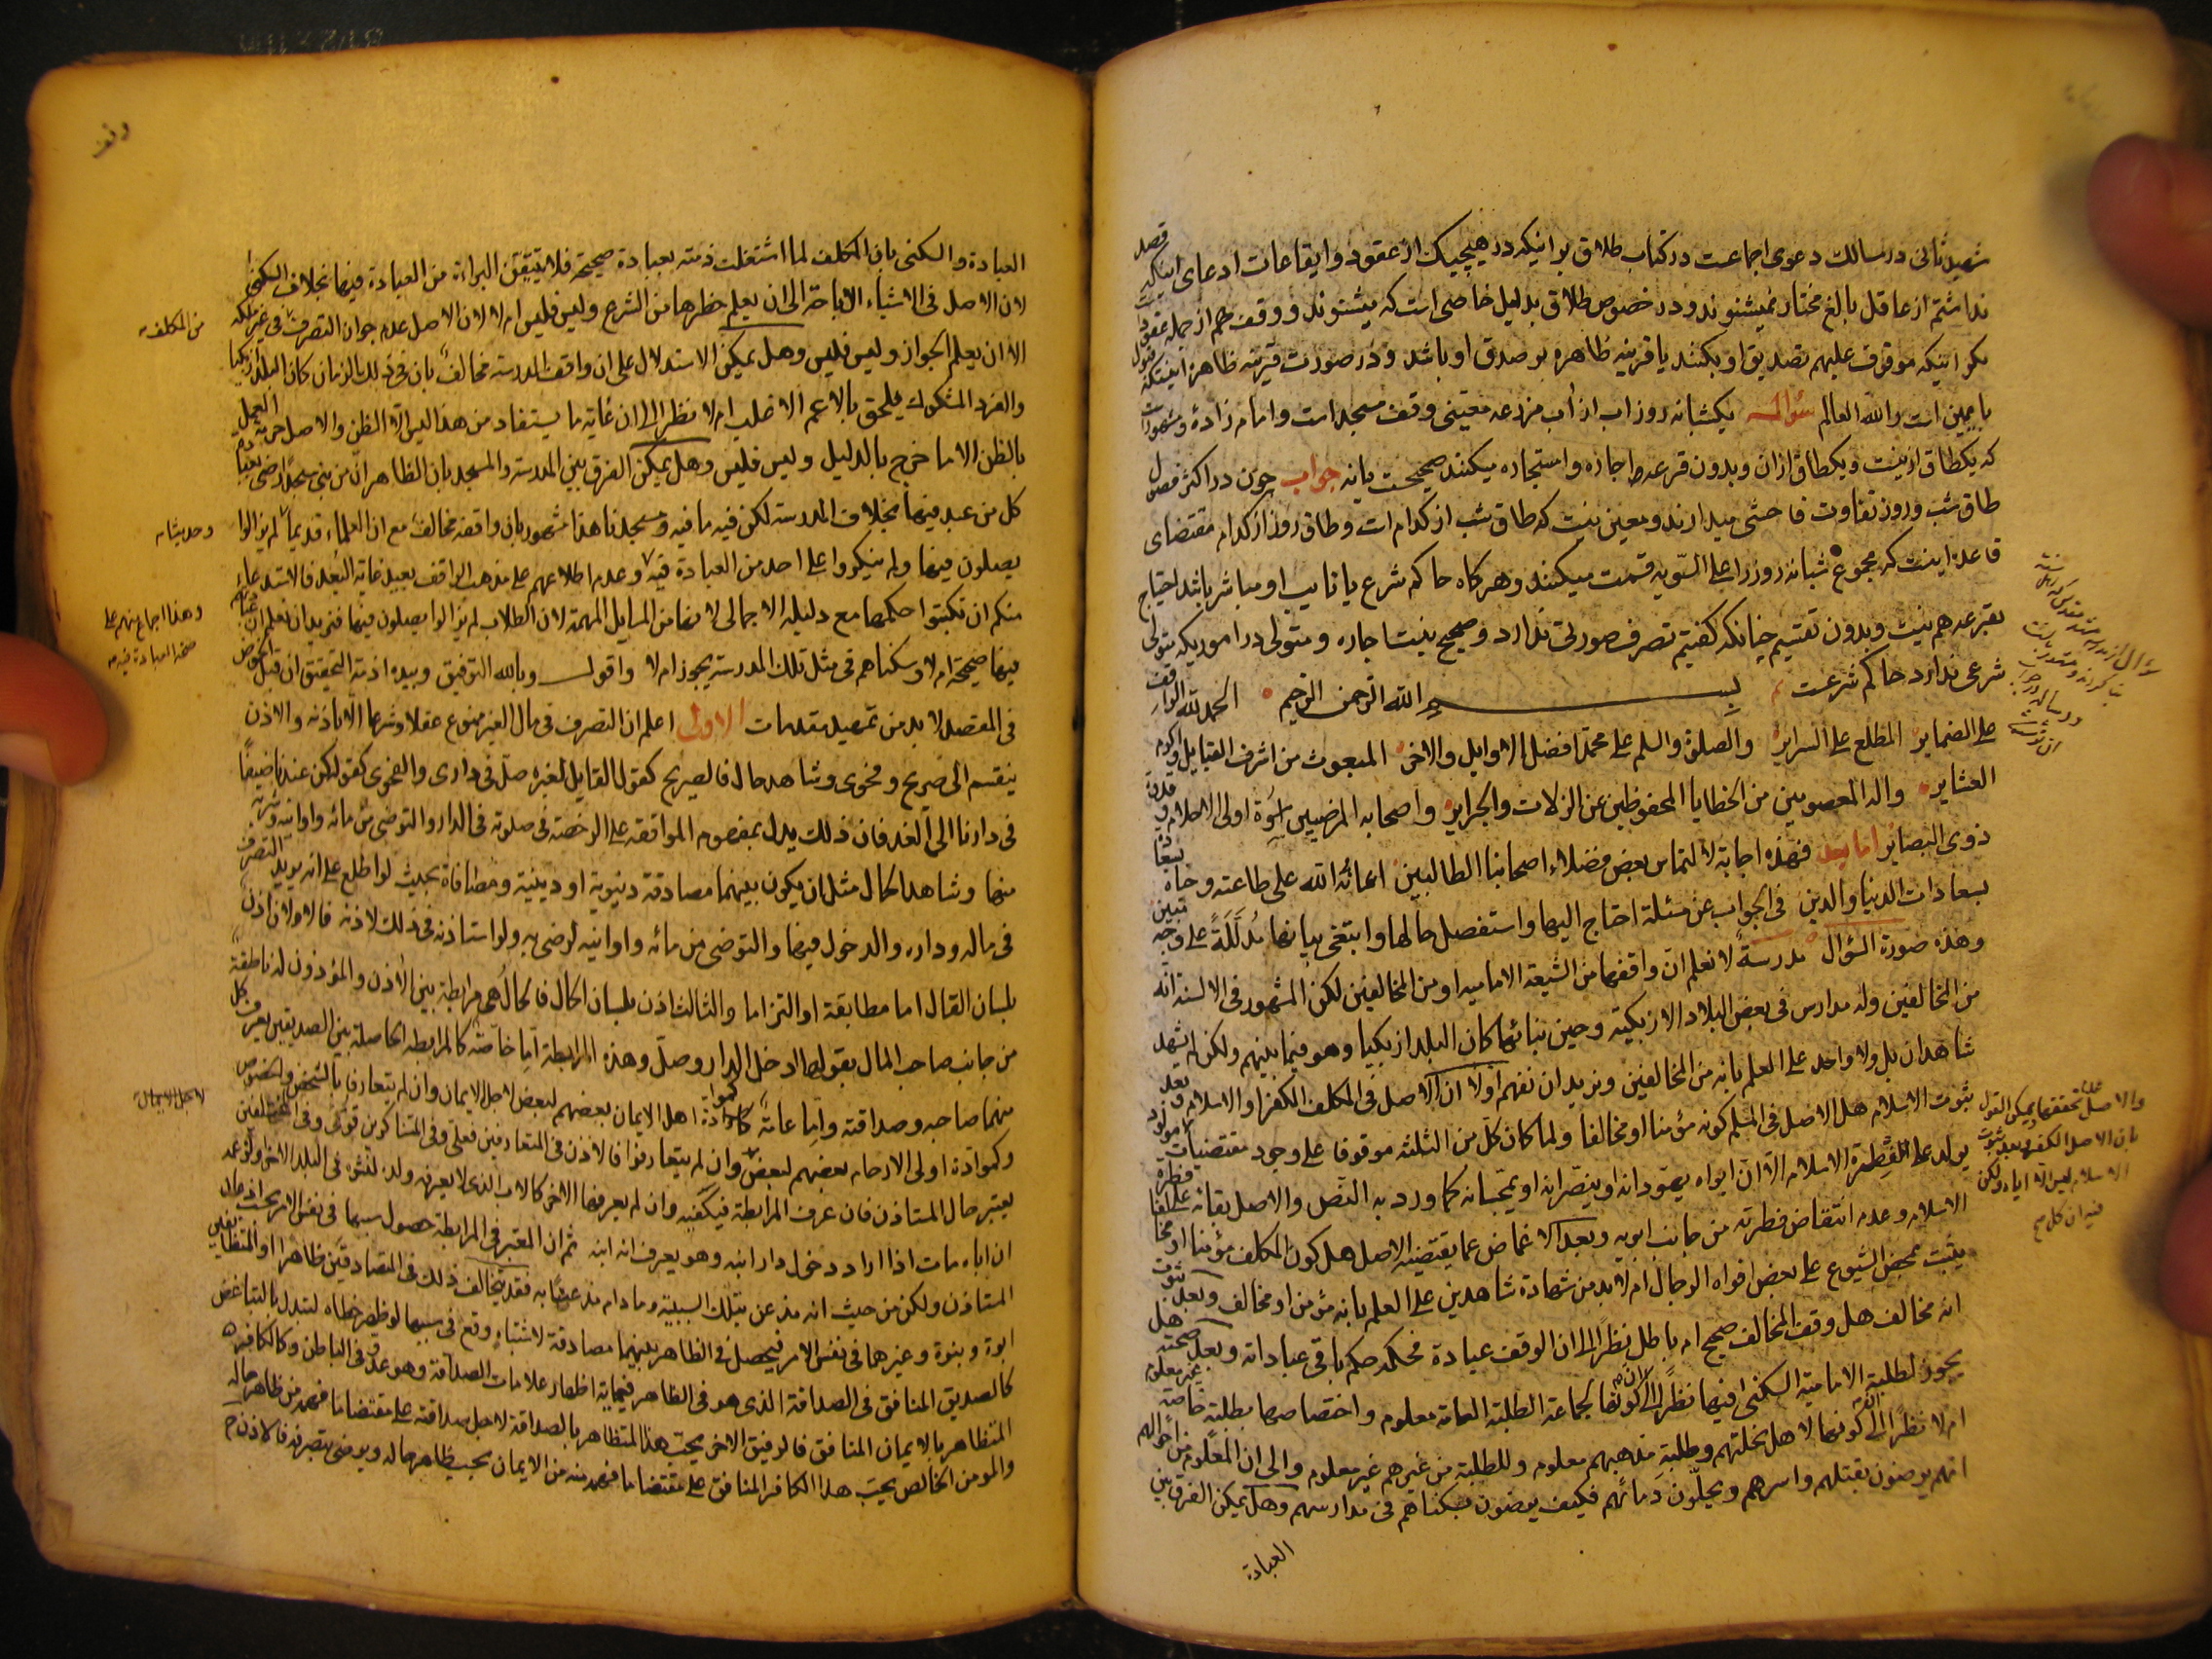 شهید ثانی در مسالك دعوی اجماعست در کتاب طلاق بر اینکه در هیچیک از عقود و ایقاعات ادعای اینکه قصد
نداشتم از عاقل بالغ مختار نمیشنوند و در خصوص طلاق بدلیل خاصی است که میشنوند و وقف هم از جمله عقود
مکر اینکه موقوف علیهم تصدیق او بکنند یا قرینه ظاهره بر صدق او باشد و در صورت قرینه ظاهر اینستکه قول
با یمین است والله العالم سؤال یکشبانه روز اب از اب مزرعه معینی وقف مسجد است و امام زاده و مشهور است
که یکطاق ازینست و یکطاق ازان و بدون قرعه اجاره و استجاره میکنند صحیحست یا نه جواب چون در اکثر فصول
طاق شب و روز تفاوت فاحشی میدارند و معین نیست که طاق شب از کدام است و طاق روز از کدام مقتضای
قاعده اینست که مجموع شبانه روز را علی السویه قسمت میکنند و هرکاه حاکم شرع یا نایب او مباشر باشد احتیاج
بقرعه هم نیست و بدون تقسیم چنانکه کفتیم تصرف صورتی ندارد و صحیح نیست اجاره و متولی در اموریکه متولی
شرعی ندارد حاکم شرعست
بسم الله الرحمن الرحیم الحمد لله الواقف
علی الضمایر المطلع علی السرایر والصلوة والسلم علی محمد افضل الاوایل والاخر المبعوث من اشرف القبایل واکرم
العشایر واله المعصومین من الخطایا المحفوظین عن الزلات والجرایر واصحابه المرضیین اسوة اولی الاحلام وقدوة
ذوی البصائر اما بعد فهذه اجابة لالتماس بعض فضلاء اصحابنا الطالبین اعانه الله علی طاعته وحباه
بسعادات الدنیا والدین فی الجواب عن مسئلة احتاج الیها واستفصل حالها وابتغی بیانها مدللة علی وجه
وهذه صورة السؤال مدرسة لا نعلم ان واقفها من الشیعة الامامیه او من المخالفین لکن المشهور فی الالسنة انه
من المخالفین وله مدارس فی بعض البلاد الازبکیة وحین بنائها کان البلد ازبکیا وهو فیما بینهم ولکن لم یشهد
شاهدان بل ولا واحد علی العلم بانه من المخالفین ونرید ان نفهم اولا ان الاصل فی المکلف الکفر او الاسلام وبعد
ثبوت الاسلام هل الاصل فی المسلم کونه مؤمنا او مخالفا ولما کان کل من الثلثة موقوفا علی وجود مقتضیات
یولد علی الفطرة الاسلام الا ان ابواه یهودانه او ینصرانه او یمجسانه کما ورد به النص والاصل بقائه علی فطرة
الاسلام وعدم انتقاض فطرته من جانب ابویه وبعد الاغماض عما یقتضیه الاصل هل کون المکلف مؤمنا او مخالفا
یثبت بمحض الشیوع علی بعض افواه الرجال ام لابد من شهادة شاهدین علی العلم بانه مؤمن او مخالف وبعد ثبوت
انه مخالف هل وقف المخالف صحیح ام باطل نظرا الی ان الوقف عبادة فحکمه حکم باقی عباداته وبعد صحته هل
یجوز لطلبة الامامیة السکنی فیها نظرا الی کونها لجماعة الطلبة العامة معلوم واختصاصها بطلبة خاصة غیر معلوم
ام لا نظرا الی کونها لاهل نحلتهم وطلبة مذهبهم معلوم وللطلبة من غیرهم غیر معلوم والی ان المعلوم من احوالهم
انهم یرضون بقتلهم واسرهم ویحلون دمائهم فکیف یرضون بسکناهم فی مدارسهم وهل یمکن الفرق بین
العبادة
والاصل تحققها یمکن القول
بان الاصل الکفر وبعد ثبوت
العبادة والسکنی بان المکلف لما اشتغلت ذمته بعبادة صحیحة فلا یتیقن البراءة من العبادة فیها بخلاف السکنی
لان الاصل فی الاشیاء الاباحة الی ان یعلم حظرها من الشرع ولیس فلیس ام لا لان الاصل عدم جواز التصرف فی غیر ملکه
الا ان یعلم الجواز ولیس فلیس وهل یمکن الاستدلال علی ان واقف المدرسة مخالف بان فی ذلك الزمان کان البلد ازبکیا
والفرد المشکوك یلحق بالاعم الاغلب ام لا نظرا الی ان غایة ما یستفاد من هذا لیس الا الظن والاصل حرمة العمل
بالظن الا ما خرج بالدلیل ولیس فلیس وهل یمکن الفرق بین المدرسة والمسجد بان الظاهر ان من بنی مسجدا رضی
کل من عبد فیها بخلاف المدرسة لکن فیه ما فیه ومسجدنا هذا مشهور بان واقفه مخالف مع ان العلماء قدیما لم یزالوا
یصلون فیها ولم ینکروا علی احد من العبادة فیه وعدم اطلاعهم علی مذهب الواقف بعید غایة البعد فالاستدعاء
منکم ان تکتبوا حکمها مع دلیله الاجمالی لانها من المسایل المهمة لان الطلاب لم یزالوا یصلون فیها فنرید ان نعلم ان
فیها صحیحة ام لا وسکناهم فی مثل تلك المدرسة یجوز ام لا واقول وبالله التوفیق وبیده ازمة التحقیق ان قبل الخوض
فی المقصد لابد من تمهید مقدمات الاولی اعلم ان التصرف فی مال الغیر ممنوع عقلا وشرعا الا باذنه والاذن
ینقسم الی صریح وفحوی وشاهد حال فالصریح کقول القایل لغیره صل فی داری والفحوی کقولك کن عندنا ضیفا
فی دارنا الی الغد فان ذلك یدل بمفهوم الموافقة علی الرخصة فی صلوته فی الدار والتوضی من مائه واوانیه
منها وشاهد الحال مثل ان یکون بینهما مصادقة دنیویة او دینیة ومصافاة بحیث لو اطلع علی انه یرید التصرف
فی ماله وداره والدخول فیها والتوضی من مائه واوانیه لرضی به ولو استاذنه فی ذلك لاذنه فالاولان اذن
بلسان القال اما مطابقة او التزاما والثالث اذن بلسان الحال فالحال هی مرابطة بین الاذن والماذون له ناطقة
من جانب صاحب المال بقولها ادخل الدار وصل وهذه المرابطة اما خاصة کالمرابطة الحاصلة بین الصدیقین یعرف کل
منهما صاحبه وصداقته واما عامة کموادة اهل الایمان بعضهم لبعض لاجل الایمان وان لم یتعارفا بالشخص
وکموادة اولی الارحام بعضهم لبعض وان لم یتعارفوا فالاذن فی المتعارفین فعلی وفی المتناکرین قوی وفی المختلفین
یعتبر حال المستاذن فان عرف المرابطة فیکفیه وان لم یعرفها الاخر کالاب الذی لا یعرفه ولده لنشوه فی البلد الاخر
ان اباه مات اذا اراد دخول دار ابنه وهو یعرف انه ابنه ثم ان المعتبر فی المرابطة حصول سببها فی نفس الامر
المستاذن ولکن من حیث انه مذعن بتلك السببیة وما دام مذعنا به فقد یتخالف ذلك فی المتصادقین ظاهرا
ابوة وبنوة وغیرهما فی نفس الامر فیحصل فی الظاهر بینهما مصادقة لاشتباه وقع فی سببها لو ظهر خطاه لتبدل بالتباغض
کالصدیق المنافق فی الصداقة الذی هو فی الظاهر اظهار علامات الصداقة وهو عدو فی الباطن وکالکافر
المتظاهر بالایمان المنافق فالرفیق الاخر یحب هذا المتظاهر بالصداقة لاجل صداقته علی مقتضا ما فهمه من ظاهر حاله
والمومن الخالص یحب هذا الکافر المنافق علی مقتضا ما فهمه منه من الایمان بحسب ظاهر حاله ویرضی بتصرفه فالاذن
من المکلف
وحدیثا
وهذا اجماع منهم علی
صحة العبادة فیه
لاجل الایمان
وقف